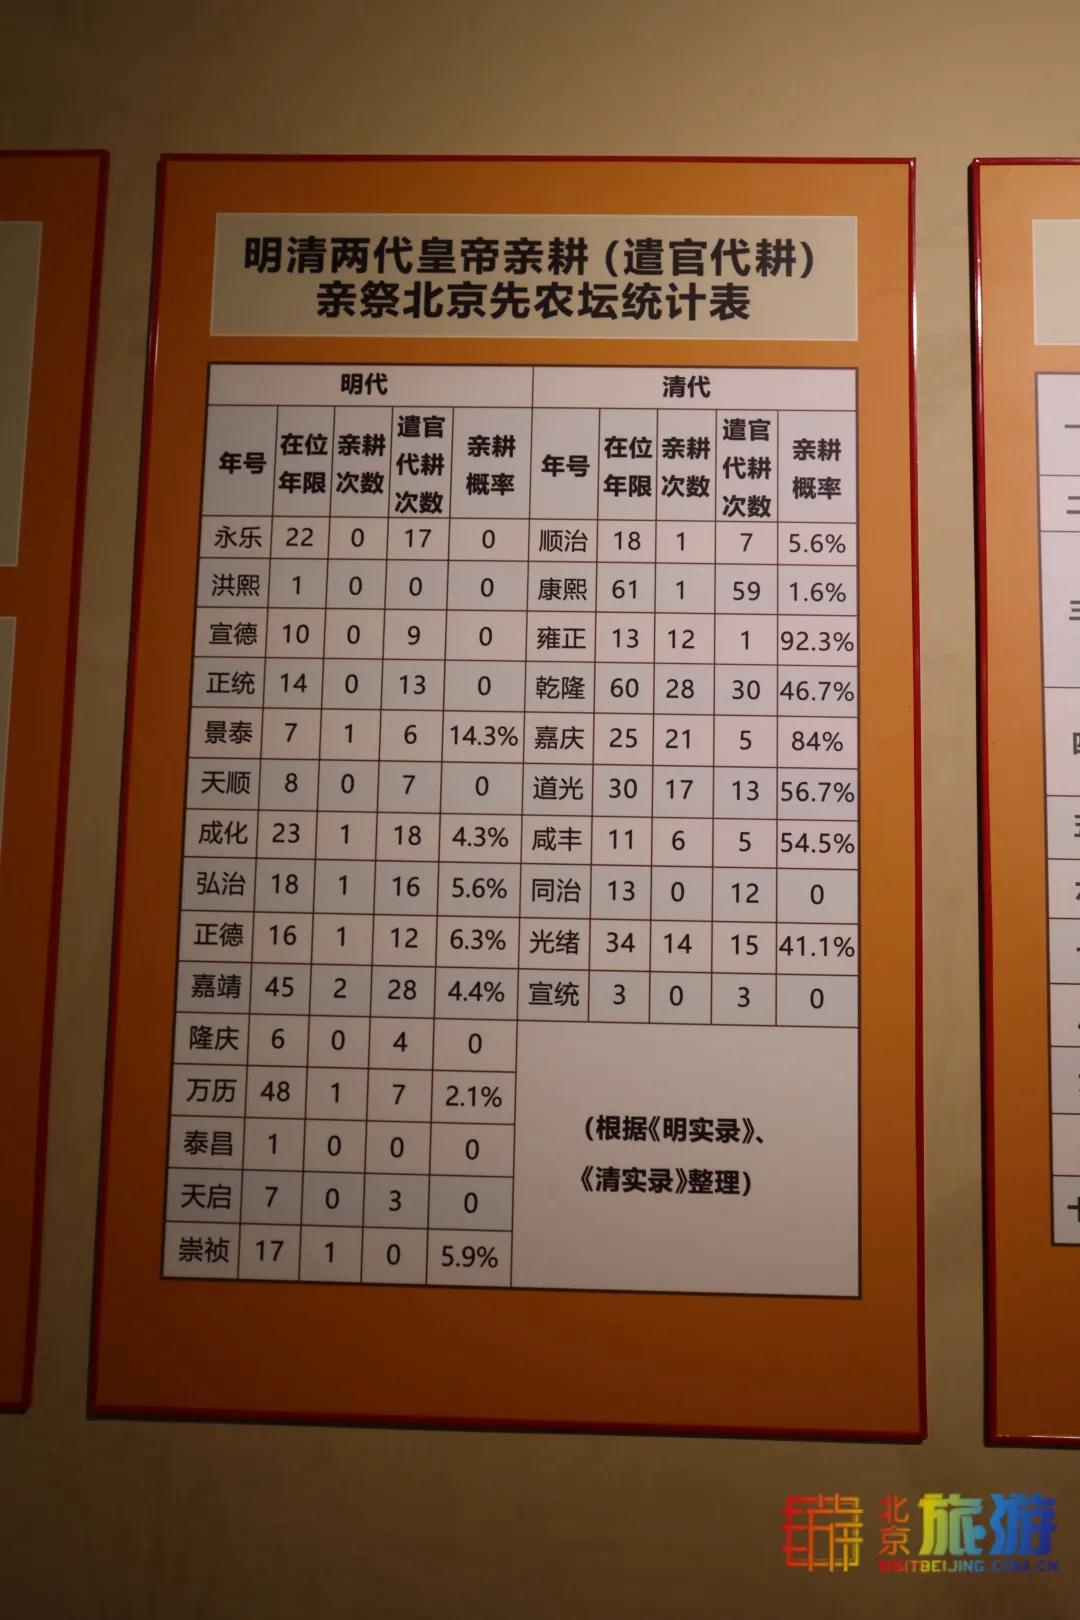 明清两代皇帝亲耕（遣官代耕）
亲祭北京先农坛统计表
明代 清代
年号 在位年限 亲耕次数 遣官代耕次数 亲耕概率 年号 在位年限 亲耕次数 遣官代耕次数 亲耕概率
永乐 22 0 17 0 顺治 18 1 7 5.6%
洪熙 1 0 0 0 康熙 61 1 59 1.6%
宣德 10 0 9 0 雍正 13 12 1 92.3%
正统 14 0 13 0 乾隆 60 28 30 46.7%
景泰 7 1 6 14.3% 嘉庆 25 21 5 84%
天顺 8 0 7 0 道光 30 17 13 56.7%
成化 23 1 18 4.3% 咸丰 11 6 5 54.5%
弘治 18 1 16 5.6% 同治 13 0 12 0
正德 16 1 12 6.3% 光绪 34 14 15 41.1%
嘉靖 45 2 28 4.4% 宣统 3 0 3 0
隆庆 6 0 4 0
万历 48 1 7 2.1%
泰昌 1 0 0 0
天启 7 0 3 0
崇祯 17 1 0 5.9%
（根据《明实录》、
《清实录》整理）
北京旅游
VISITBEIJING.COM.CN